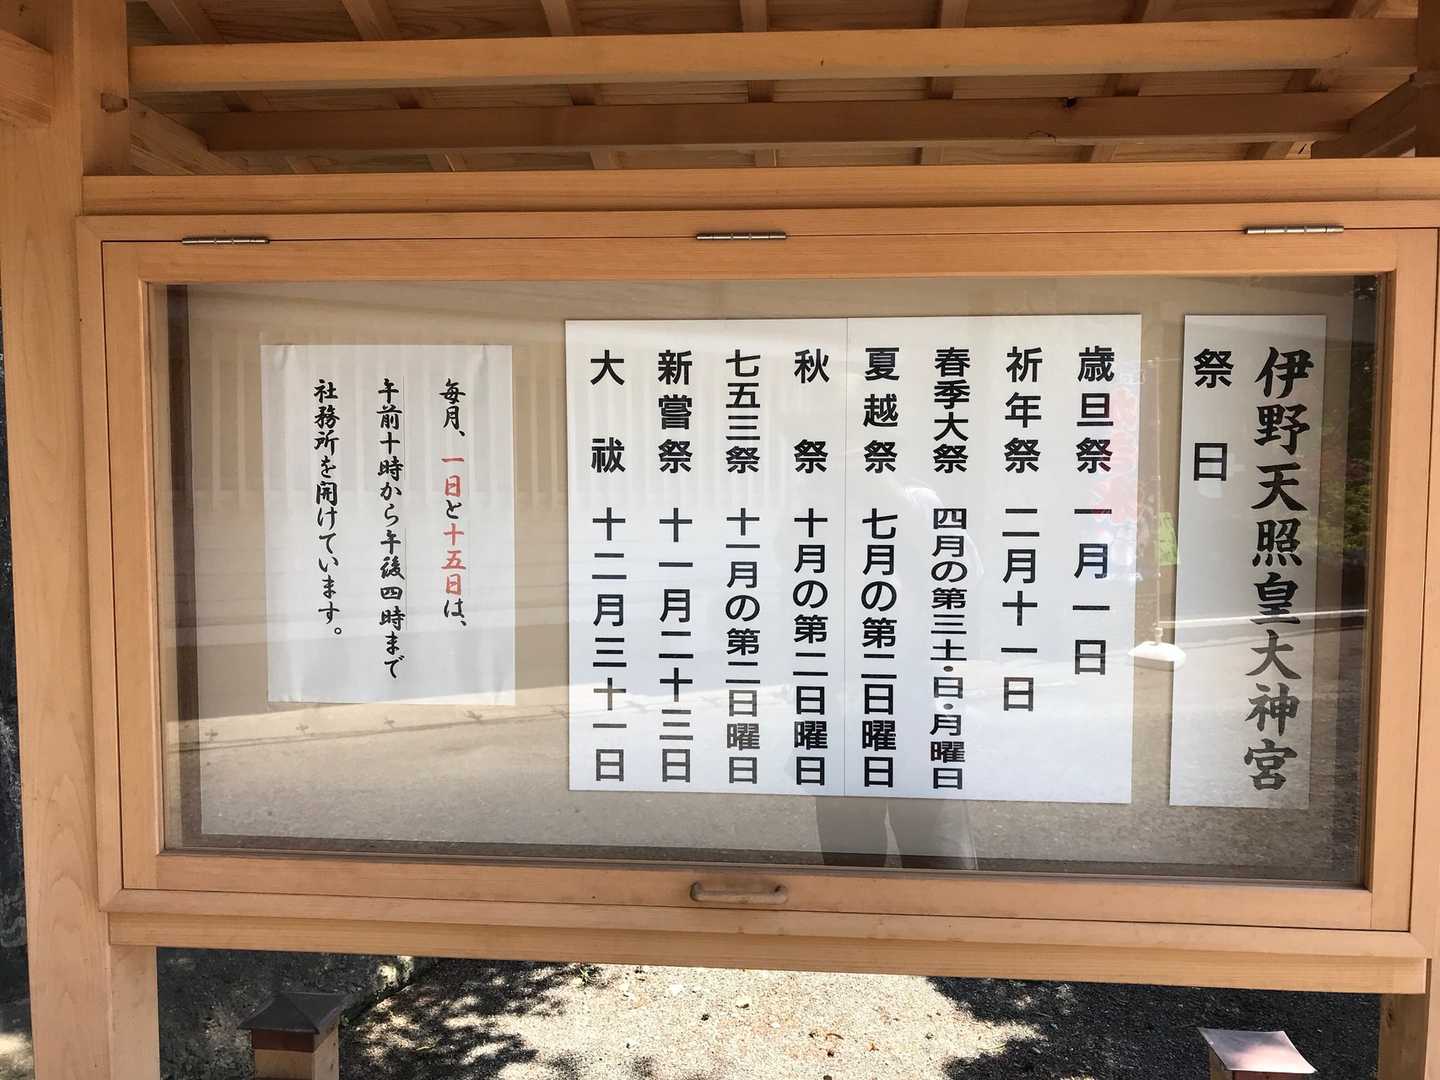 伊野天照皇大神宮
祭日
歳旦祭 一月一日
祈年祭 二月十一日
春季大祭 四月の第三土・日・月曜日
夏越祭 七月の第二日曜日
秋祭 十月の第二日曜日
七五三祭 十一月の第二日曜日
新嘗祭 十一月二十三日
大祓 十二月三十一日
毎月、一日と十五日は、
午前十時から午後四時まで
社務所を開けています。